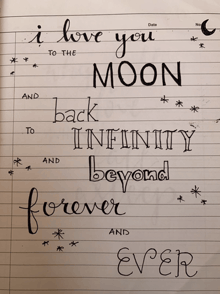 i love you
Date
No
TO THE
MOON
AND
back
TO
INFINITY
AND
beyond
forever
AND
EVER